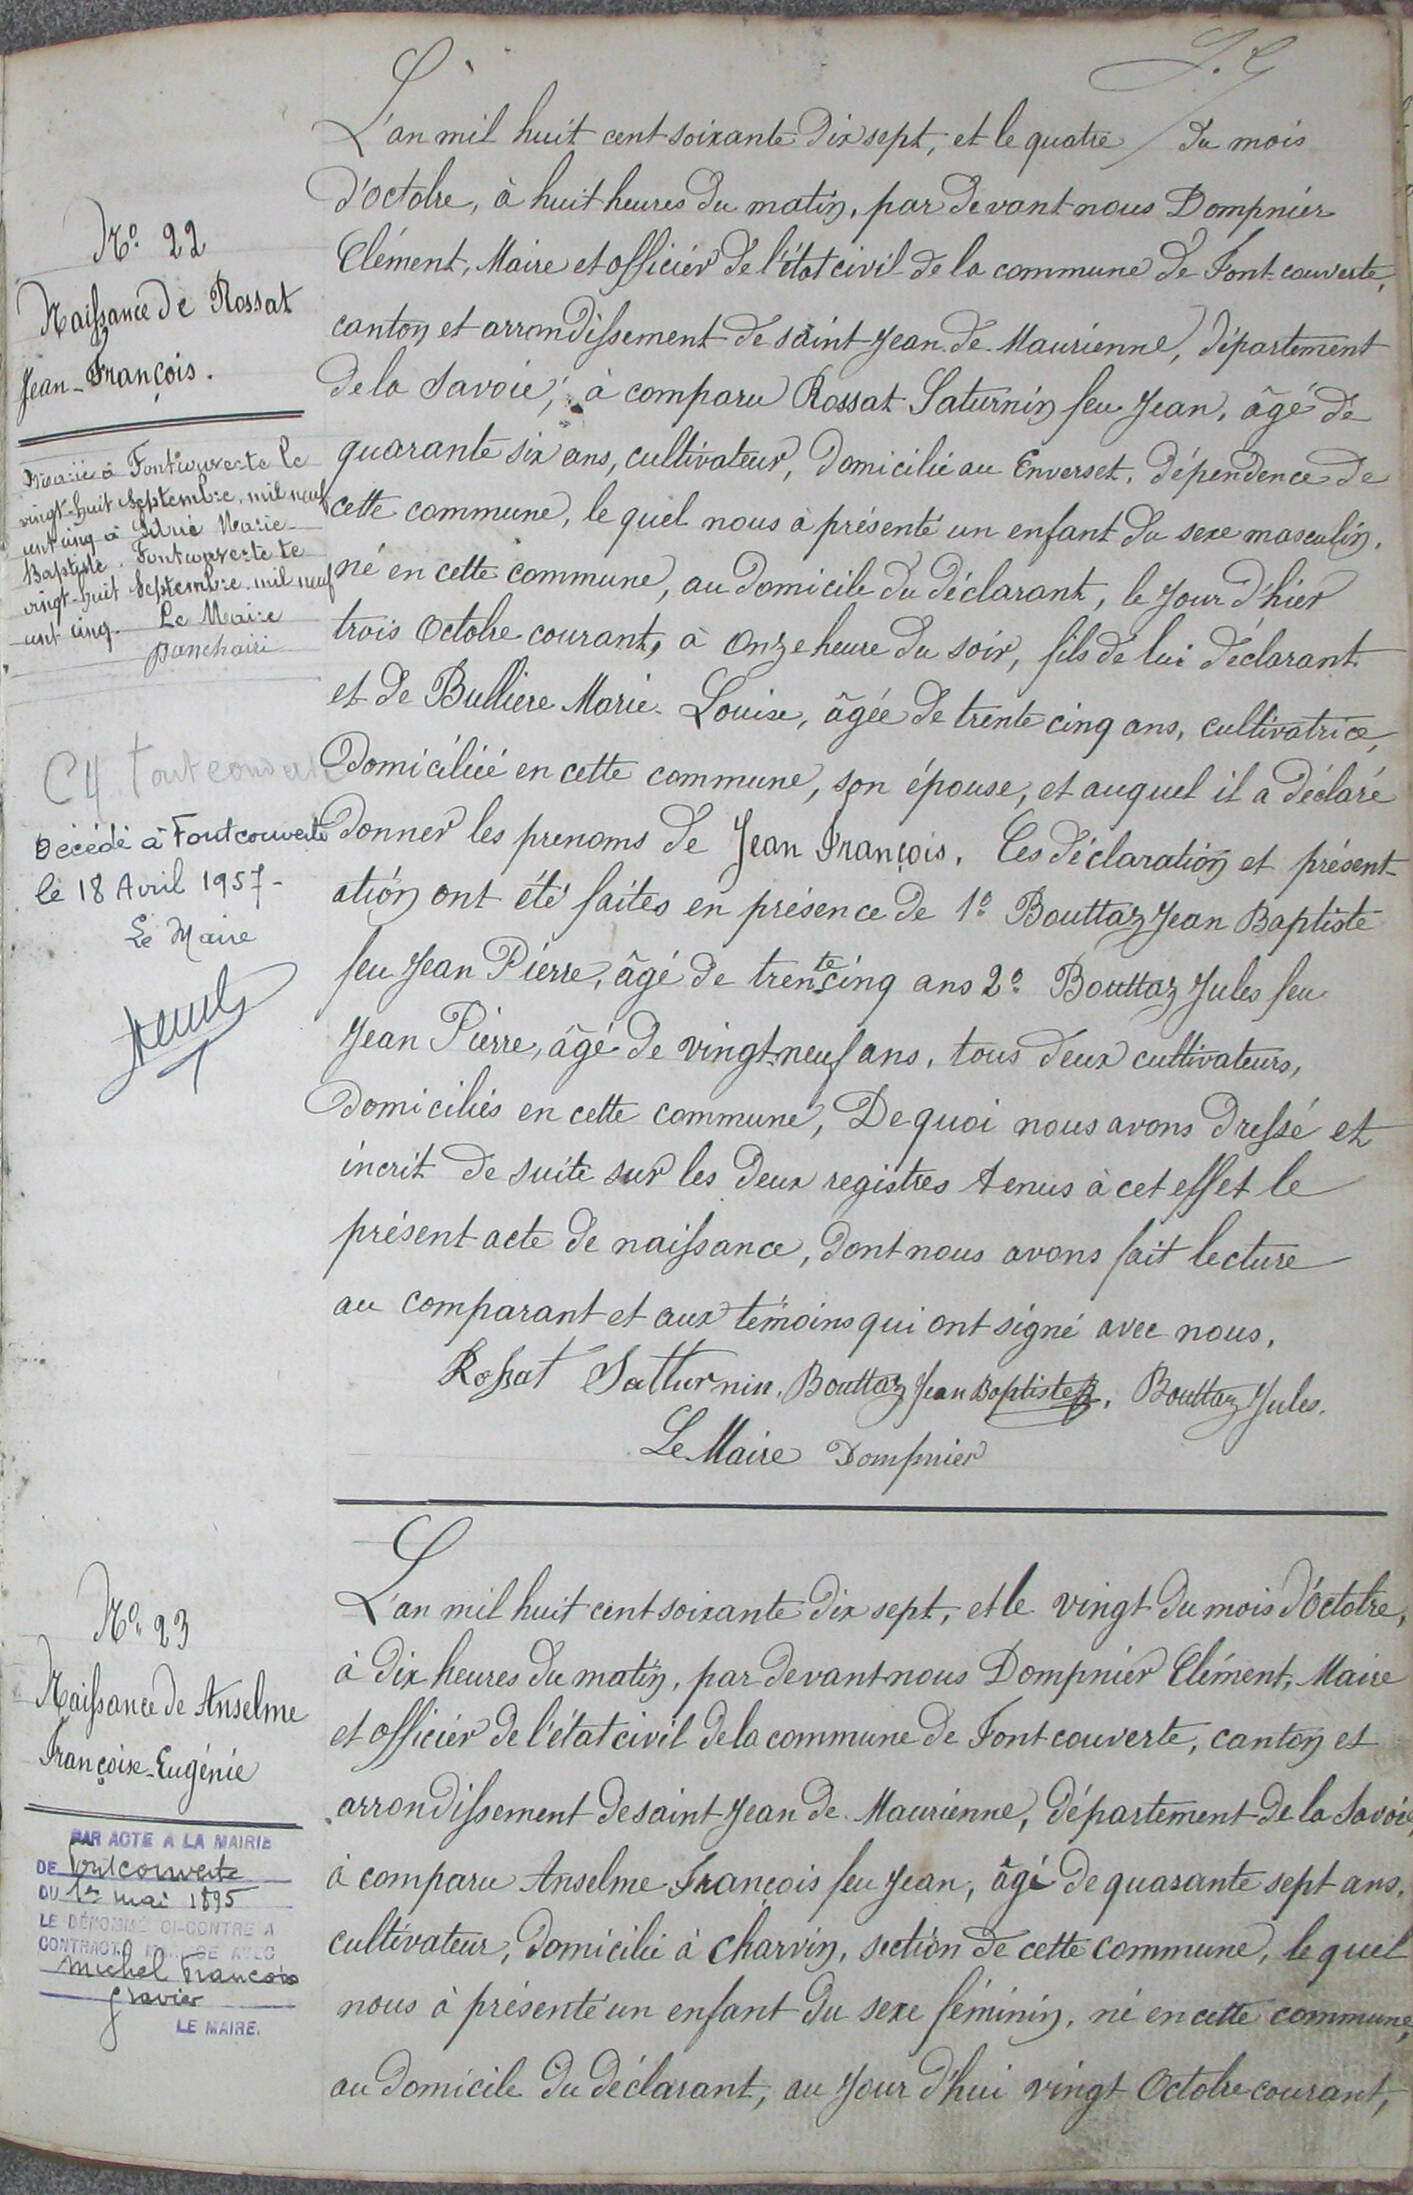 L'an mil huit cent soixante dix sept, et le quatre du mois
d'octobre, à huit heures du matin, par devant nous Dompnier
Clément, Maire et officier de l'état civil de la commune de Fontcouverte,
canton et arrondissement de saint Jean de Maurienne, département
de la Savoie, à comparu Rossat Saturnin feu Jean, âgé de
quarante six ans, cultivateur, domicilié au Enverset, dépendence de
cette commune, le quel nous à présenté un enfant du sexe masculin,
né en cette commune, au domicile du déclarant, le jour d'hier
trois Octobre courant, à onze heure du soir, fils de lui déclarant
et de Bulliere Marie-Louise, âgée de trente cinq ans, cultivatrice,
domiciliée en cette commune, son épouse, et auquel il a déclaré
donner les prenoms de Jean François. Ces déclaration et présent-
ation ont été faites en présence de 1° Bouttaz Jean Baptiste
feu Jean Pierre, âgé de trente cinq ans 2° Bouttaz Jules feu
Jean Pierre, âgé de vingt-neuf ans, tous deux cultivateurs,
domiciliés en cette commune, De quoi nous avons dressé et
incrit de suite sur les deux registres tenus à cet effet le
présent acte de naissance, dont nous avons fait lecture
au comparant et aux témoins qui ont signé avec nous.
Rossat Satturnin. Bouttaz Jean Baptiste, Bouttaz Jules.
Le Maire Dompnier
N° 22
Naissance de Rossat
Jean-François.
Marié à Fontcouverte le
vingt-huit Septembre mil neuf
cent cinq à Marie
Baptiste. Fontcouverte le
vingt-huit Septembre mil neuf
cent cinq. Le Maire
C4 Fontcouverte
Décédé à Fontcouverte
le 18 Avril 1957-
Le Maire
L'an mil huit cent soixante dix sept, et le vingt du mois d'Octobre,
à dix heures du matin, par devant nous Dompnier Clément, Maire
et officier de l'état civil de la commune de Fontcouverte, canton et
arrondissement de saint Jean de Maurienne, département de la Savoie,
à comparu Anselme François feu Jean, âgé de quarante sept ans,
cultivateur, domicilié à Charvin, section de cette commune, le quel
nous à présenté un enfant du sexe féminin, né en cette commune,
au domicile du déclarant, au jour d'hui vingt Octobre courant,
N° 23
Naissance de Anselme
Françoise-Eugénie
PAR ACTE A LA MAIRIE
DE Fontcouverte
DU 1er mai 1895
LE DÉNOMMÉ CI-CONTRE A
CONTRACTÉ MARIAGE AVEC
Michel François
Gravier
LE MAIRE.